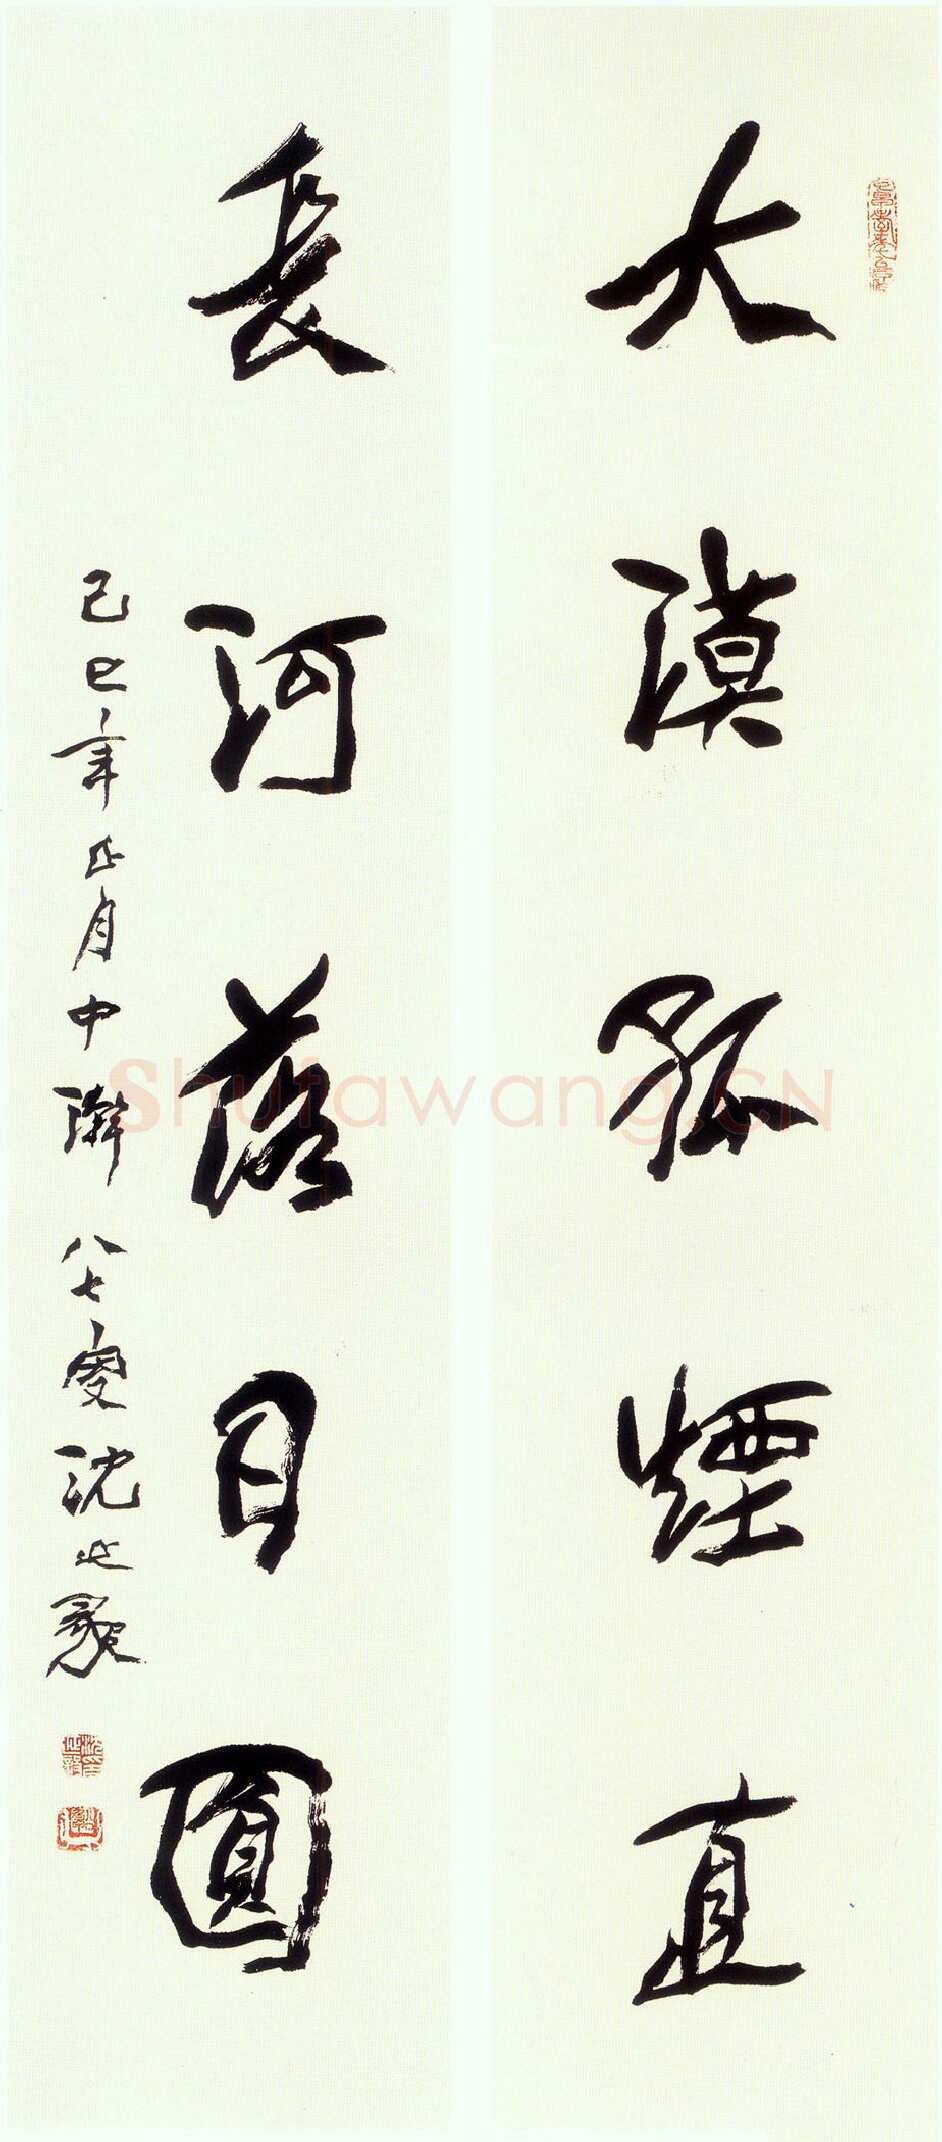 大漠孤煙直
長河落日圓
己巳年正月中澣八七叟沈延毅
Shufawang.CN